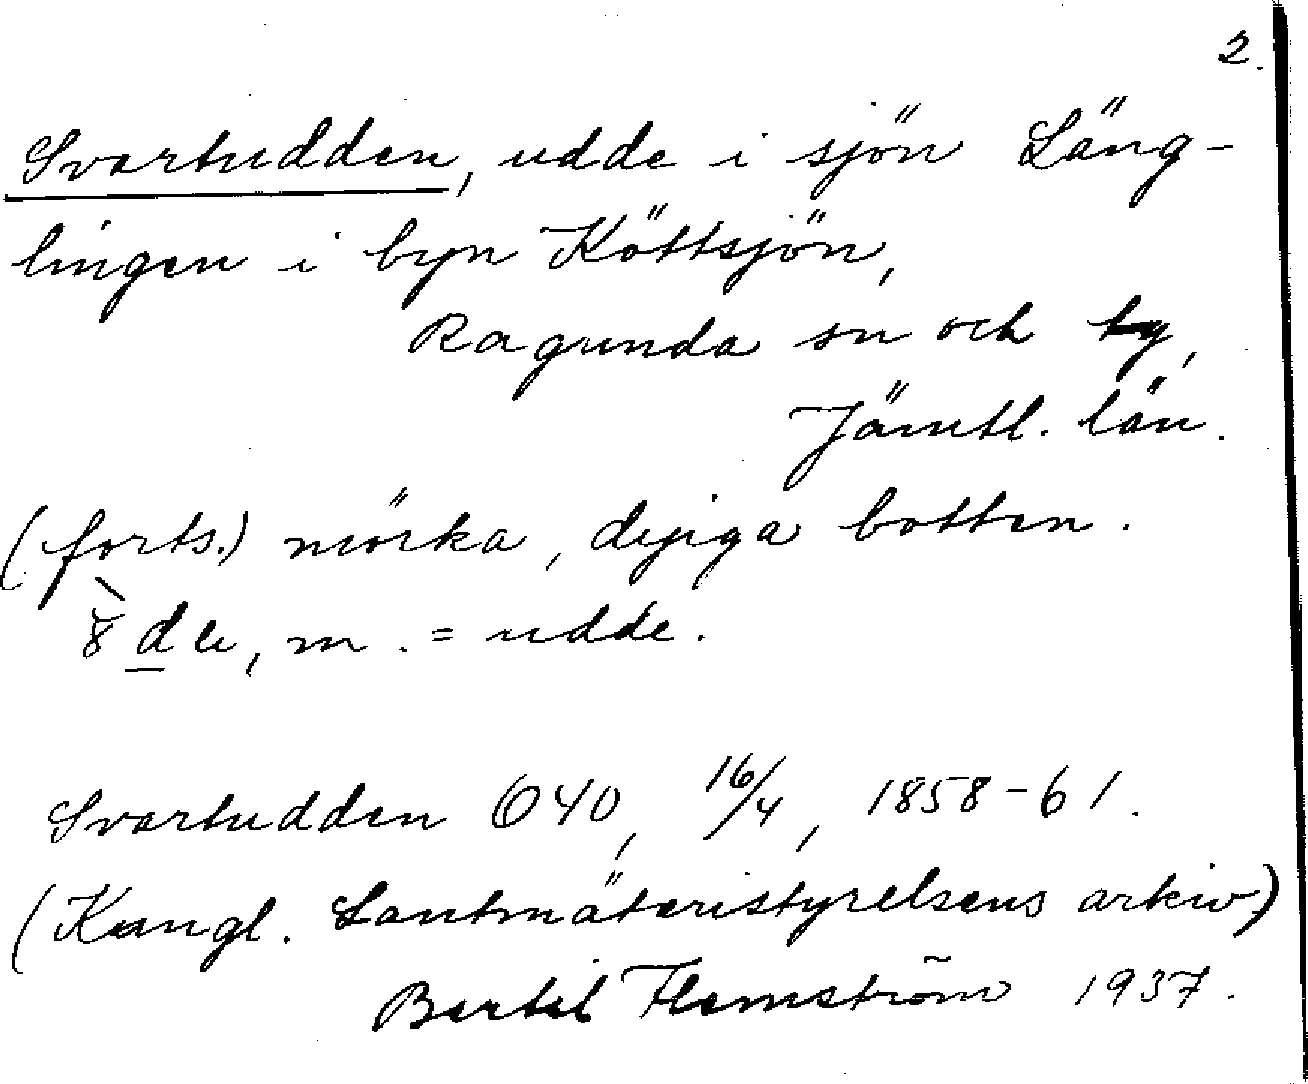 2.
Svartudden, udde i sjön Läng-
lingen i byn Köttsjön,
Ragunda sn och tg,
Jämtl. län.
(forts.) mörka, dyiga botten.
de, m. = udde.
Svartudden Ö40, 16/4, 1858-61.
(Kungl. Lantmäteristyrelsens arkiv)
Bertil Flemström 1937.